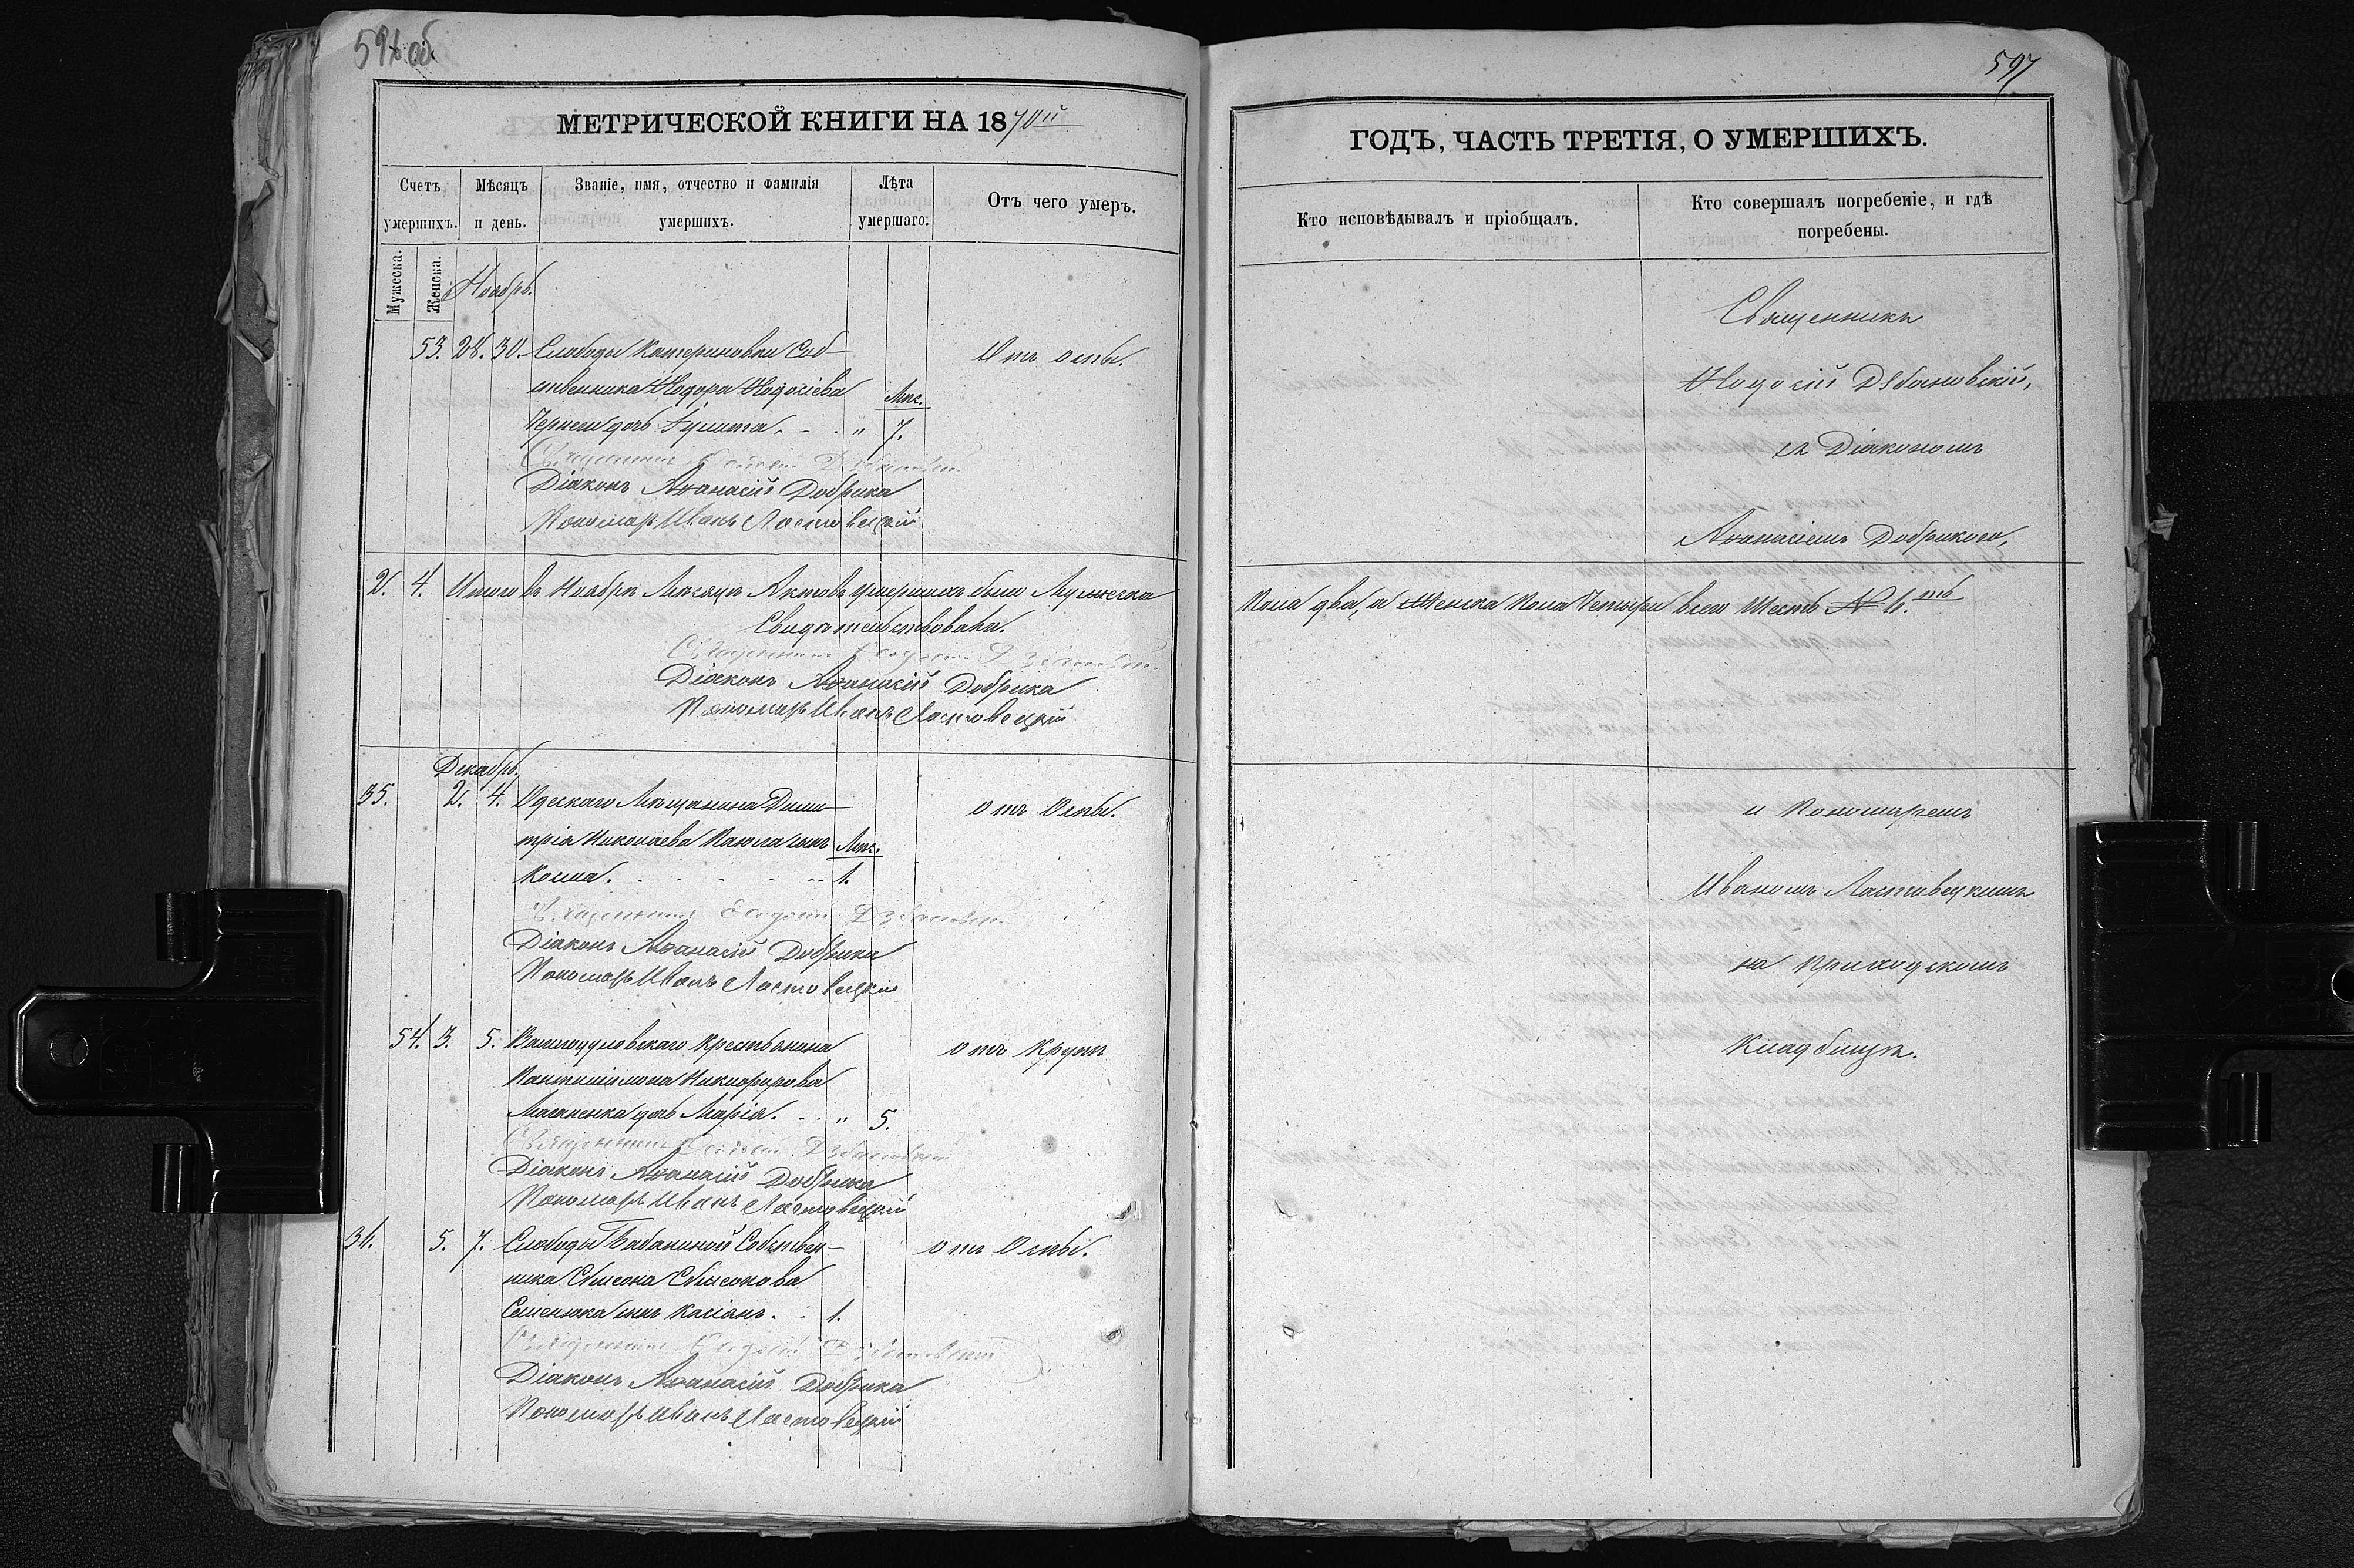 596 об
МЕТРИЧЕСКОЙ КНИГИ НА 1870й
Счетъ умершихъ.
Мѣсяцъ и день.
Званіе, имя, отчество и фамилія умершихъ.
Лѣта умершаго.
Отъ чего умеръ.
Мужеска.
Женска.
Ноябрь.
53. 28. 30. Слободы Катериновки Соб-
Отъ оспы.
ственника Ѳеодора Ѳеодосіева
Мѣс.
дочь „ 7.
Священникъ Ѳеодосій
Діаконъ Аѳанасій Добрика
Пономарь Иванъ Ластовецкій
2. 4. Итого въ Ноябрѣ Мѣсяцѣ Актовъ умершихъ было Мужеска
Свидѣтельствовали.
Священникъ Ѳеодосій
Діаконъ Аѳанасій Добрика
Пономарь Иванъ Ластовецкій
Декабрь.
35. 2. 4. Одескаго Мѣщанина Дими-
отъ Оспы.
трія Николаева Павла сынъ
Мѣс.
Косма. 1.
Священникъ Ѳеодосій
Діаконъ Аѳанасій Добрика
Пономарь Иванъ Ластовецкій
54. 3. 5. крестьянина
отъ крупъ
Пантилимона Никифорова
дочь Марія. „ 5.
Священникъ Ѳеодосій
Діаконъ Аѳанасій Добрика
Пономарь Иванъ Ластовецкій
36. 5. 7. Слободы Бабанкиной Собствен-
отъ Оспы.
ника Сѵмеона Сѵмеонова
Семенюка сынъ Касіанъ. 1.
Священникъ Ѳеодосій
Діаконъ Аѳанасій Добрика
Пономарь Иванъ Ластовецкій
597
ГОДЪ, ЧАСТЬ ТРЕТІЯ, О УМЕРШИХЪ.
Кто исповѣдывалъ и пріобщалъ.
Кто совершалъ погребеніе, и гдѣ погребены.
Священникъ
Ѳеодосій Дзбановскій,
съ Діакономъ
Аѳанасіемъ Добрикою,
Пола два, а Женска Пола Четыри всего Шесть № 6.ть
и Пономаремъ
Иваномъ Ластовецкимъ
на приходскомъ
Кладбищѣ.